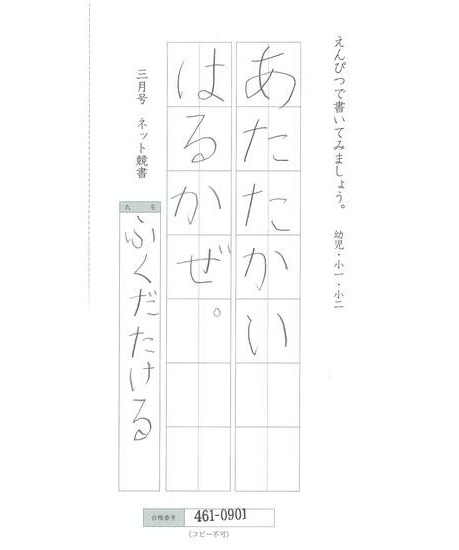 えんぴつで書いてみましょう。 幼児・小一・小二
あたたかい
はるかぜ。
三月号 ネット競書
氏名
ふくだたける
合格番号 461-0901
(コピー不可)